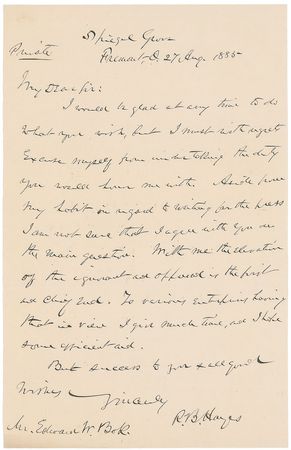 Spiegel Grove
Private
Fremont, O. 27 Aug. 1885
My Dear Sir:
I would be glad at any time to do
what you wish, but I must with regret
excuse myself from undertaking the duty
you would honor me with. Aside from
my habit in regard to writing for the press
I am not sure that I agree with you on
the main question. With me the elevation
of the ignorant and oppressed is the first
and chief end. To various enterprises having
that in view I give much time, and I hope
some efficient aid.
But success to you & all good
wishes
Sincerely
R. B. Hayes
Mr. Edward W. Bok.